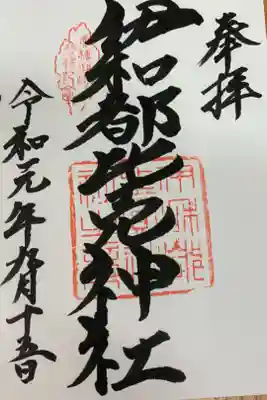 奉拝
伊和都比売神社
令和元年九月十五日